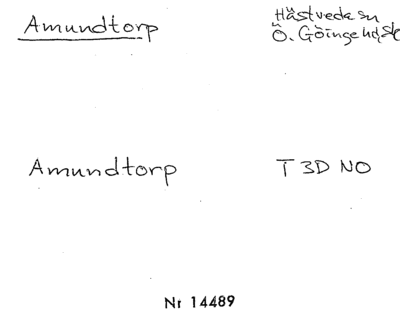 Amundtorp
Hästveda sn
Ö. Göinge hd, Sk
Amundtorp
T 3D NO
Nr 14489